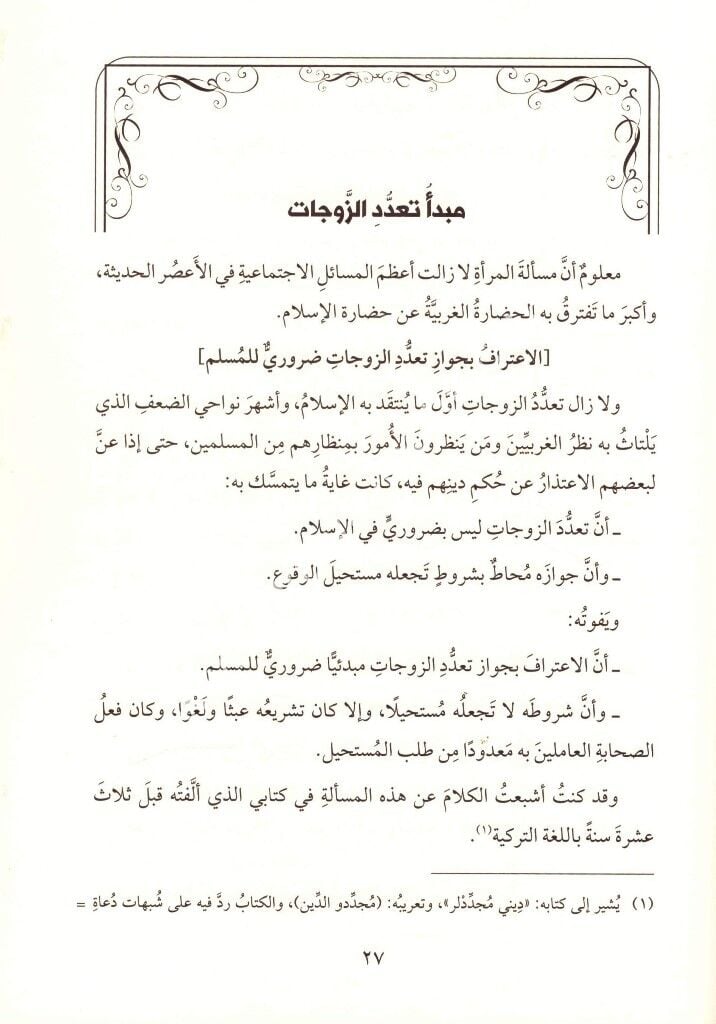 مبدأُ تعدُّدِ الزَّوجات
معلومٌ أنَّ مسألةَ المرأةِ لا زالت أعظمَ المسائلِ الاجتماعيةِ في الأَعصُر الحديثة،
وأكبرَ ما تَفترقُ به الحضارةُ الغربيَّةُ عن حضارة الإسلام.
[الاعترافُ بجوازِ تعدُّدِ الزوجاتِ ضروريٌّ للمُسلم]
ولا زال تعدُّدُ الزوجاتِ أوَّلَ ما يُنتقَد به الإسلامُ، وأشهرَ نواحي الضعفِ الذي
يَلْتاثُ به نظرُ الغربيِّينَ ومَن يَنظرونَ الأُمورَ بمِنظارِهم مِن المسلمين، حتى إذا عنَّ
لبعضهم الاعتذارُ عن حُكمِ دينِهم فيه، كانت غايةُ ما يتمسَّك به:
ـ أنَّ تعدُّدَ الزوجاتِ ليس بضروريٍّ في الإسلام.
ـ وأنَّ جوازَه مُحاطٌ بشروطٍ تَجعله مستحيلَ الوقوع.
ويَفوتُه:
ـ أنَّ الاعترافَ بجواز تعدُّدِ الزوجاتِ مبدئيًّا ضروريٌّ للمسلم.
ـ وأنَّ شروطَه لا تَجعلُه مُستحيلًا، وإلا كان تشريعُه عبثًا ولَغْوًا، وكان فعلُ
الصحابةِ العاملينَ به مَعدودًا مِن طلب المُستحيل.
وقد كنتُ أشبعتُ الكلامَ عن هذه المسألةِ في كتابي الذي ألَّفته قبلَ ثلاثَ
عشرةَ سنةً باللغة التركية(١).
(١) يُشير إلى كتابه: «دِيني مُجدِّدْلر»، وتعريبُه: (مُجدِّدو الدِّين)، والكتابُ ردَّ فيه على شُبهات دُعاةِ =
٢٧